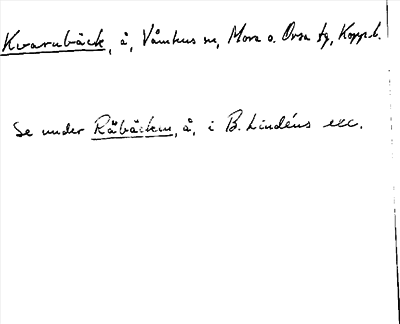 Kvarnbäck, å, Våmhus sn, Mora o. Orsa tg, Kopp.l.
Se under Råbäcken, å, i B. Lindéns exc.